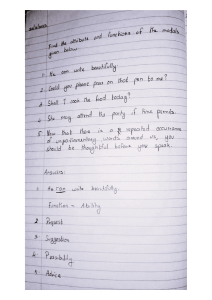 Find the attribute and functions of the modals
given below.
1. He can write beautifully
2. Could you please pass on that pen to me?
3. Shall I cook the food today?
4. She may attend the party if time permits.
5. Now that there is a repeated occurrence
of unparliamentary words around us, you
should be thoughtful before you speak.
Answers:
1. He can write beautifully.
Function = Ability
2. Request
3. Suggestion
4. Possibility
5. Advice